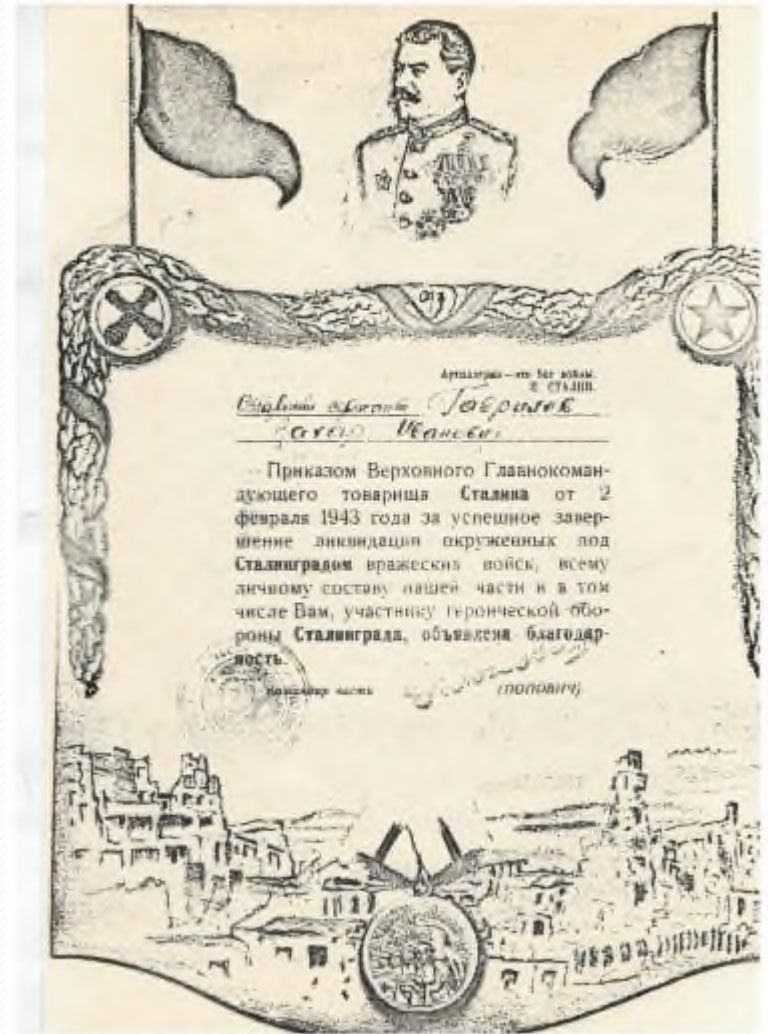 Артиллерия — это бог войны.
И. СТАЛИН.
Гаврилов
Иванович
Приказом Верховного Главнокоман-
дующего товарища Сталина от 2
февраля 1943 года за успешное завер-
шение ликвидации окруженных под
Сталинградом вражеских войск, всему
личному составу нашей части и в том
числе Вам, участнику героической обо-
роны Сталинграда, объявлена благодар-
ность.
Командир части (ПОПОВИЧ)